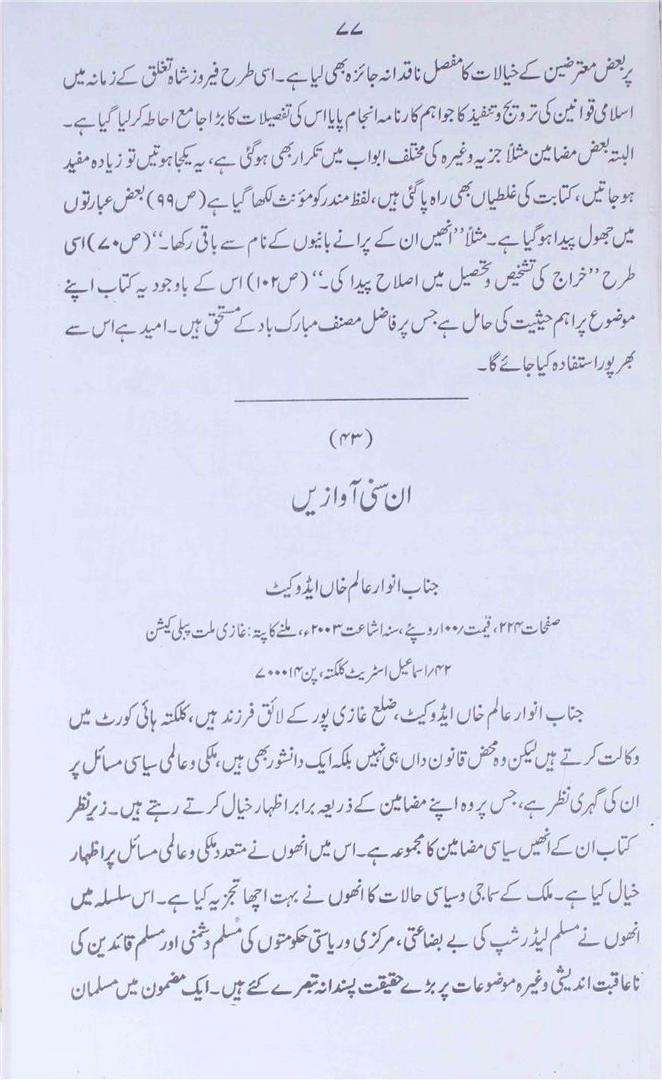 ۷۷
پر بعض معترضین کے خیالات کا مفصل ناقدانہ جائزہ بھی لیا ہے۔ اسی طرح فیروز شاہ تغلق کے زمانہ میں
اسلامی قوانین کی ترویج و تنفیذ کا جو اہم کارنامہ انجام پایا اس کی تفصیلات کا بڑا جامع احاطہ کر لیا گیا ہے۔
البتہ بعض مضامین مثلاً جزیہ وغیرہ کی مختلف ابواب میں تکرار بھی ہو گئی ہے، یہ یکجا ہوتیں تو زیادہ مفید
ہو جاتیں، کتابت کی غلطیاں بھی راہ پا گئی ہیں، لفظ مندر کو مؤنث لکھا گیا ہے (ص ۹۹) بعض عبارتوں
میں جھول پیدا ہو گیا ہے۔ مثلاً ’’انھیں ان کے پرانے بانیوں کے نام سے باقی رکھا۔‘‘ (ص ۷۰) اسی
طرح ’’خراج کی تشخیص و تحصیل میں اصلاح پیدا کی۔‘‘ (ص ۱۰۲) اس کے باوجود یہ کتاب اپنے
موضوع پر اہم حیثیت کی حامل ہے جس پر فاضل مصنف مبارک باد کے مستحق ہیں۔ امید ہے اس سے
بھرپور استفادہ کیا جائے گا۔
(۴۳)
ان سنی آوازیں
جناب انوار عالم خاں ایڈوکیٹ
صفحات ۲۲۴، قیمت /۱۰۰ روپئے، سنہ اشاعت ۲۰۰۳ء، ملنے کا پتہ: غازی ملت پبلی کیشن
۴۲/اسماعیل اسٹریٹ کلکتہ، پن ۷۰۰۰۱۴
جناب انوار عالم خاں ایڈوکیٹ، ضلع غازی پور کے لائق فرزند ہیں، کلکتہ ہائی کورٹ میں
وکالت کرتے ہیں لیکن وہ محض قانون داں ہی نہیں بلکہ ایک دانشور بھی ہیں، ملکی و عالمی سیاسی مسائل پر
ان کی گہری نظر ہے، جس پر وہ اپنے مضامین کے ذریعہ برابر اظہار خیال کرتے رہتے ہیں۔ زیر نظر
کتاب ان کے انھیں سیاسی مضامین کا مجموعہ ہے۔ اس میں انھوں نے متعدد ملکی و عالمی مسائل پر اظہار
خیال کیا ہے۔ ملک کے سماجی و سیاسی حالات کا انھوں نے بہت اچھا تجزیہ کیا ہے۔ اس سلسلہ میں
انھوں نے مسلم لیڈرشپ کی بے بضاعتی، مرکزی و ریاستی حکومتوں کی مسلم دشمنی اور مسلم قائدین کی
ناعاقبت اندیشی وغیرہ موضوعات پر بڑے حقیقت پسندانہ تبصرے کئے ہیں۔ ایک مضمون میں مسلمان